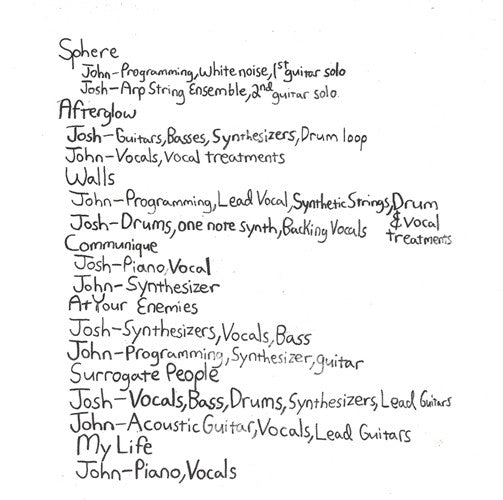 Sphere
John-Programming, White noise, 1st guitar solo
Josh-Arp String Ensemble, 2nd guitar solo.
Afterglow
Josh-Guitars, Basses, Synthesizers, Drum loop
John-Vocals, Vocal treatments
Walls
John-Programming, Lead Vocal, Synthetic Strings, Drum & Vocal treatments
Josh-Drums, one note synth, Backing Vocals
Communique
Josh-Piano, Vocal
John-Synthesizer
At Your Enemies
Josh-Synthesizers, Vocals, Bass
John-Programming, Synthesizer, guitar
Surrogate People
Josh-Vocals, Bass, Drums, Synthesizers, Lead Guitars
John-Acoustic Guitar, Vocals, Lead Guitars
My Life
John-Piano, Vocals